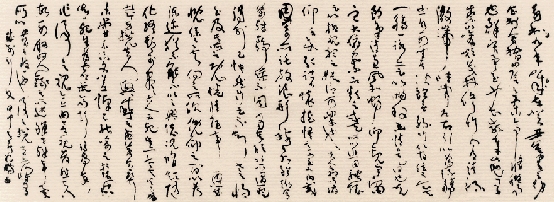 永和九年歲在癸丑暮春之初
會于會稽山陰之蘭亭脩禊事
也群賢畢至少長咸集此地有
崇山峻領茂林脩竹又有清流
激湍暎帶左右引以為流觴
曲水列坐其次雖無絲竹管絃之盛
一觴一詠亦足以暢敘幽情是日也天
朗氣清惠風和暢仰觀宇宙
之大俯察品類之盛所以遊目騁懷
足以極視聽之娛信可樂也夫人之相與俯
仰一世或取諸懷抱悟言一室之內或
因寄所託放浪形骸之外雖趣舍
萬殊靜躁不同當其欣於所遇暫
得於己快然自足不知老之將至
及其所之既惓情隨事遷感
慨係之矣向之所欣俛仰之間已為陳
迹猶不能不以之興懷況脩短隨
化終期於盡古人云死生亦大矣豈不痛
哉每攬昔人興感之由若合一契
未嘗不臨文嗟悼不能喻之於懷
固知一死生為虛誕齊彭殤為妄
作後之視今亦由今之視昔悲夫
故列敘時人錄其所述雖世殊事異
所以興懷其致一也後之攬者亦將有感於斯文